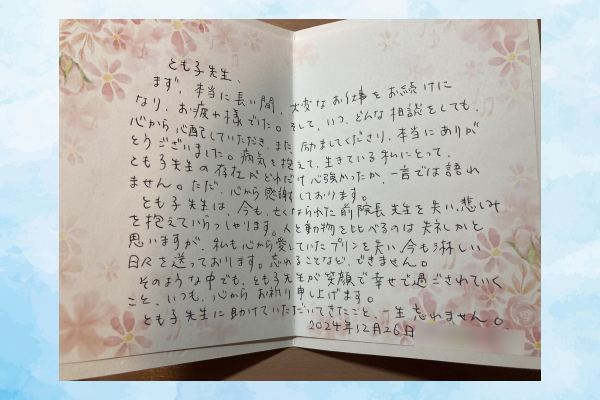 とも子先生、
まず、本当に長い間、大変なお仕事をお続けに
なり、お疲れ様でした。そして、いつ、どんな相談をしても、
心から心配していただき、また、励ましてくださり、本当にありが
とうございました。病気を抱えて、生きている私にとって、
とも子先生の存在がどれだけ心強かったか、一言では語れ
ません。ただ、心から感謝しております。
とも子先生は、今も、亡くなられた前院長先生を失い、悲しみ
を抱えていらっしゃります。人と動物を比べるのは失礼かと
思いますが、私も心から愛していたプリンを失い、今も淋しい
日々を送っております。忘れることなど、できません。
そのような中でも、とも子先生が笑顔で幸せで過ごされていく
こと、いつも、心からお祈り申し上げます。
とも子先生に助けていただいてきたこと、一生忘れません。
2024年12月26日